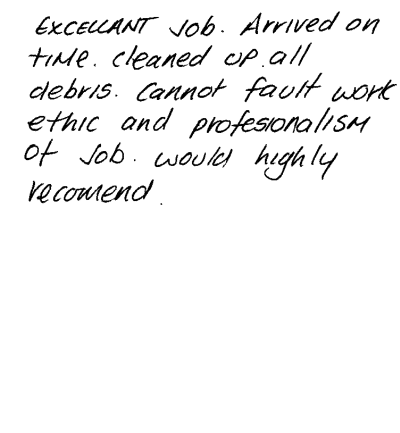 EXCELLANT Job. Arrived on
time. cleaned up all
debris. Cannot fault work
ethic and profesionalism
of Job. would highly
recomend.